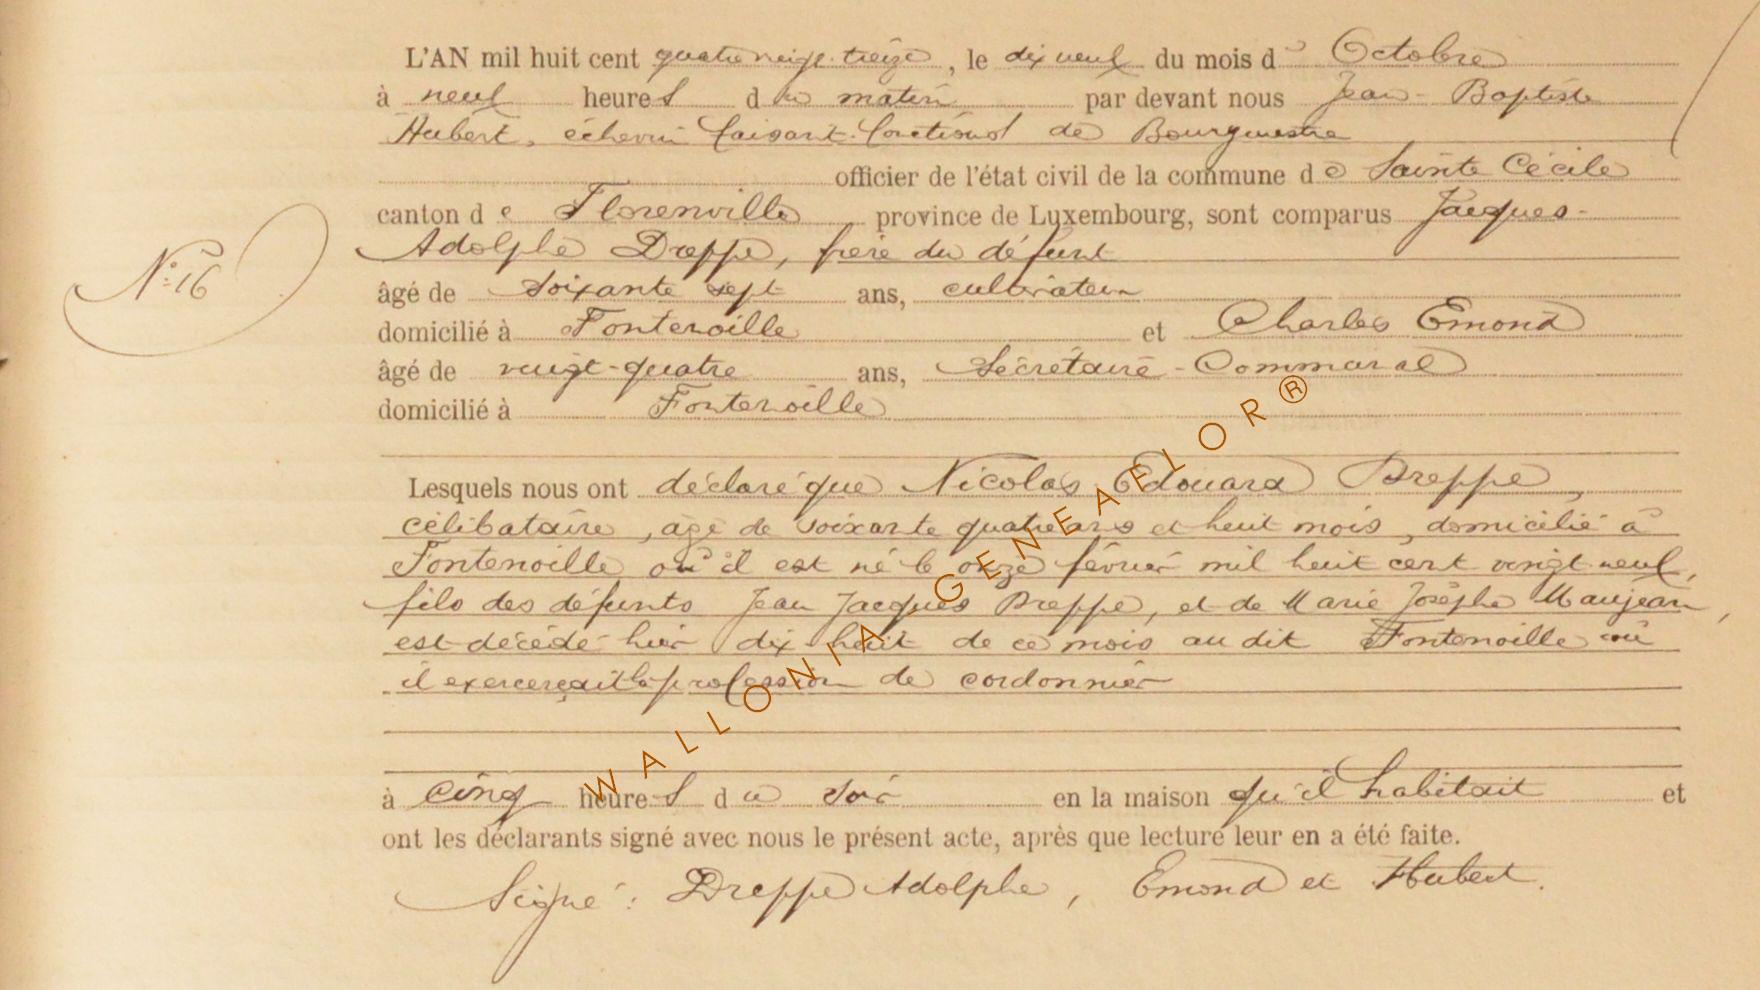 L'AN mil huit cent quatre vingt treize, le dix neuf du mois d' Octobre
à neuf heures du matin par devant nous Jean-Baptiste
Hubert, échevin faisant fonctions de Bourgmestre
officier de l'état civil de la commune de Sainte Cécile
canton de Florenville province de Luxembourg, sont comparus Jacques-
N° 16
Adolphe Dreppe, frère du défunt
âgé de soixante sept ans, cultivateur
domicilié à Fontenoille et Charles Emond
âgé de vingt-quatre ans, Secrétaire-Communal
domicilié à Fontenoille
Lesquels nous ont déclaré que Nicolas Edouard Dreppe,
célibataire, âgé de soixante quatre ans et huit mois, domicilié à
Fontenoille où il est né le onze février mil huit cent vingt neuf,
fils des défunts Jean Jacques Dreppe, et de Marie Josèphe Maujean,
est décédé hier dix huit de ce mois au dit Fontenoille où
il exercerçait la profession de cordonnier
à cinq heures du soir en la maison qu'il habitait et
ont les déclarants signé avec nous le présent acte, après que lecture leur en a été faite.
Signé : Dreppe Adolphe, Emond et Hubert.
WALLONIA GENEAFLOR®